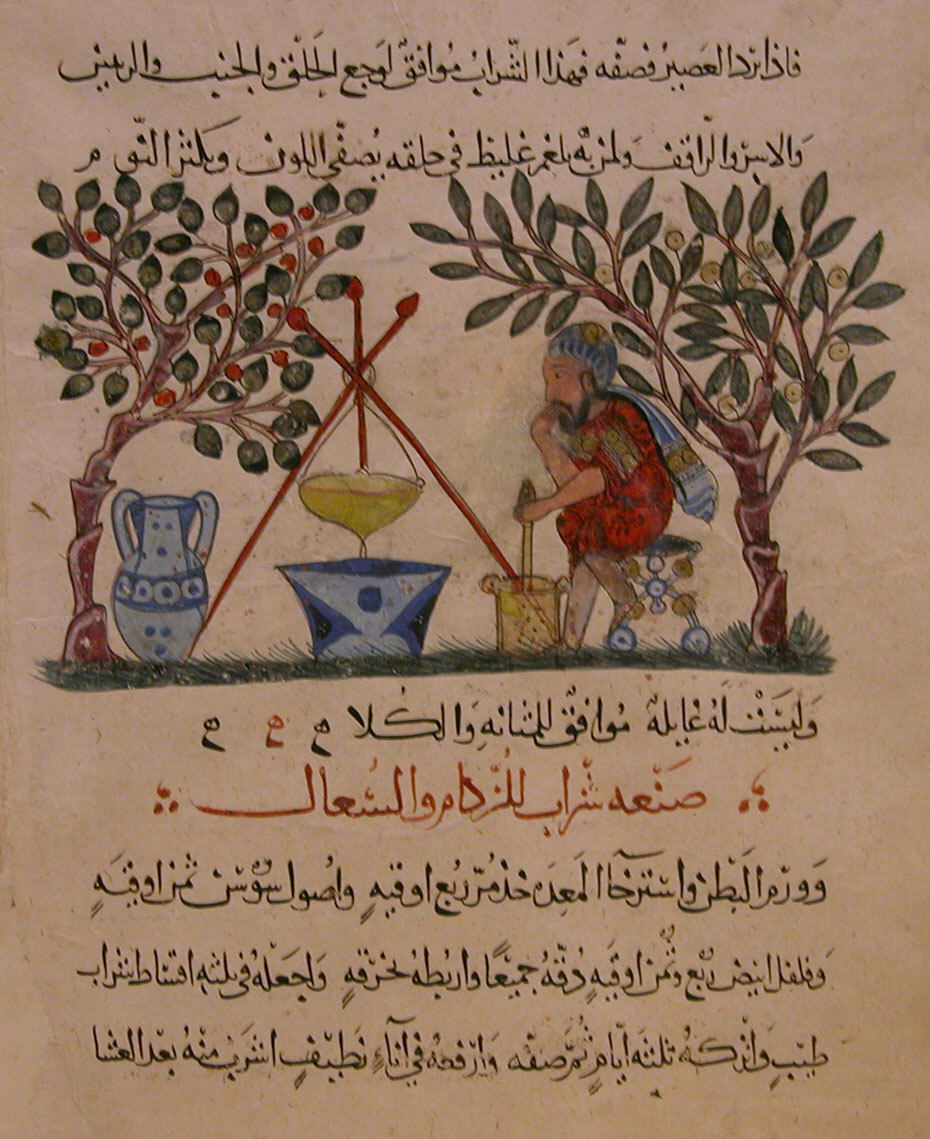 فاذا برد العصير فصفّه فهذا الشراب موافق لوجع الحلق والجنب والرئتين
والاسر والراقف ولمن به بلغم غليظ في حلقه يصفّى اللون ويكثر النوم
وَليسَت لهُ غايلة موافق للمثانه وَالكلا
صنعه شراب للزكام والسعال
وَورم البَطن واسترخا المعده خذ مرّ ربع اوقيهٍ واصُول سوسن ثمن اوقيةٍ
وَفلفل ابيض ربع وثمن اوقيهٍ دقّه جميعًا واربطه بخرقهٍ وَاجعَله في ثلثه اقساط شراب
طيّبٍ وَاتركه ثلثه ايّامٍ ثم صفّه وَارفعه في اناءٍ نظيفٍ اشرب منهُ بعد العشا